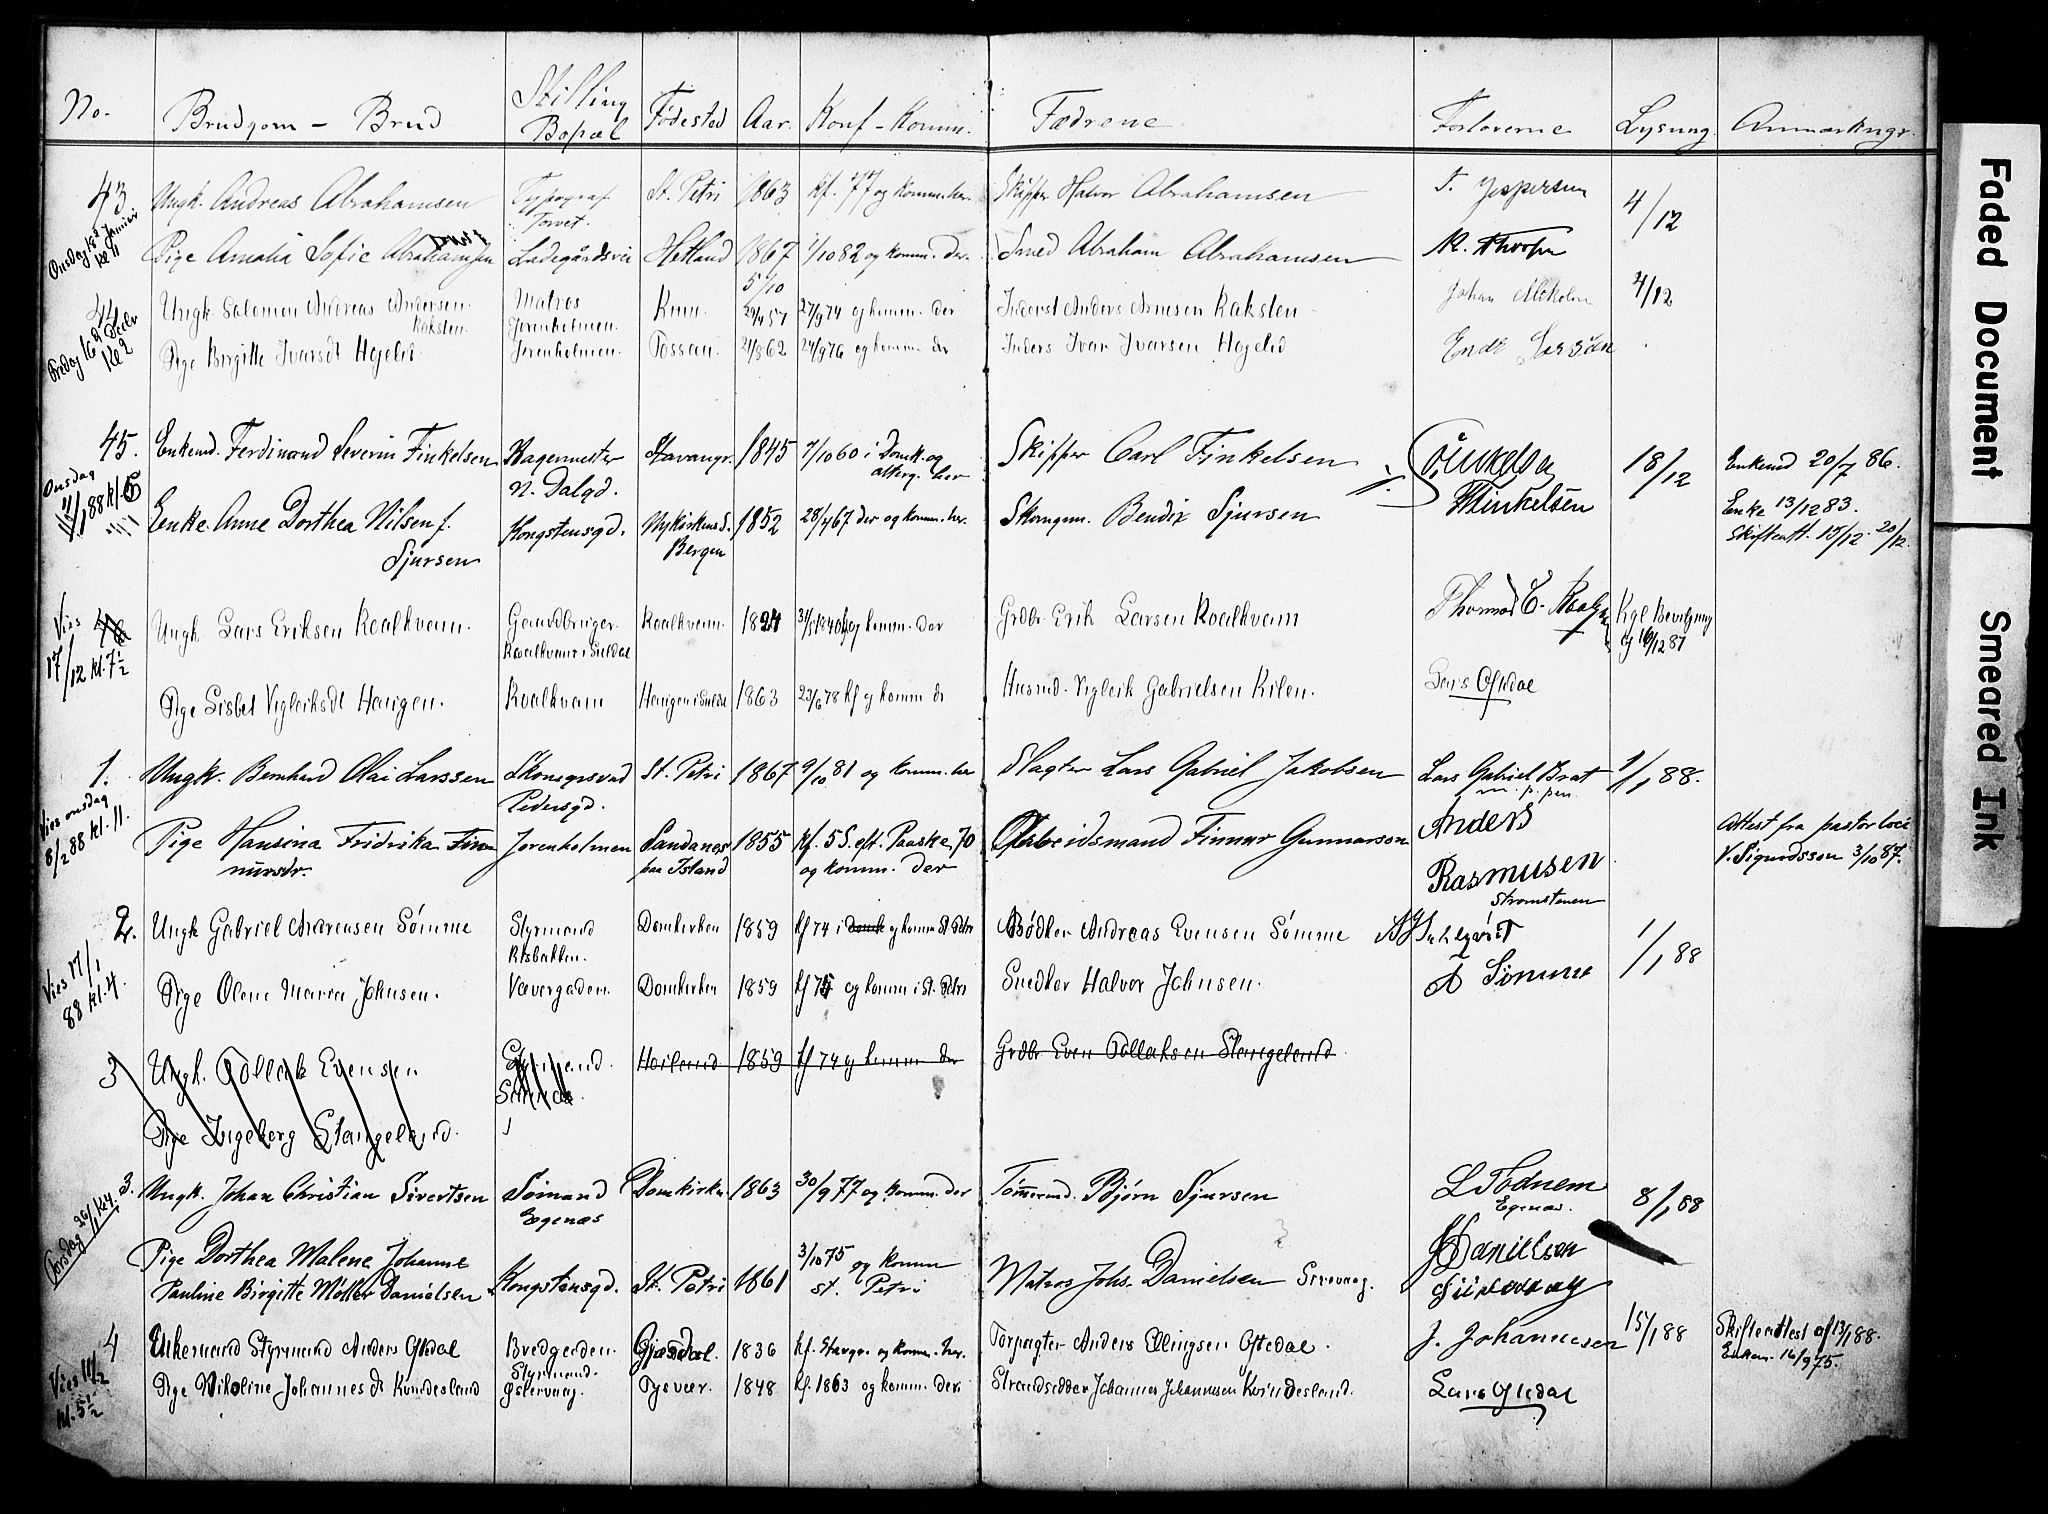 No. Brudgom - Brud Stilling Bopæl Fødested Aar. Konf-Komm. Fædrene Forloverne Lysning. Anmærkngr.
43 Ungk. Andreas Abrahamsen Typograf St. Petri 1863 kf. 77 og komm. her. Skipper Halvor Abrahamsen T. Jespersen 4/12
Torvet.
Onsdag 18de Januar Kl 11
Pige Amalia Sofie Abrahamsen Ladegårdsvei Hetland 1867 1/10 82 og komm. der. Smed Abraham Abrahamsen
5/10
44 Ungk. Salomon Andreas Andersen Matros 29/4 57 27/9 74 og komm. der Inderst Anders Arnesen Raksten Johan 4/12
Raksten. Jorenholmen.
Fredag 16de Decbr Kl 2
Pige Birgitte Ivarsdt Hojelid. Jorenholmen. Fossan. 21/8 62 24/9 76 og komm. der Inders Ivar Ivarsen Hojelid Endr
45. Enkemd. Ferdinand Severin Finkelsen Bagermester Stavangr. 1845 7/10 60 i Domk. og Skipper Carl Finkelsen 18/12 Enkemd 20/7 86.
N. Dalgd. altérg. her
Onsdag 11/1 88 kl. 6
Enke. Anne Dorthea Nilsen f. Kongstensgd. Nykirkens S. 1852 28/4 67 der og komm. her. Skomgm. Bendix Sjursen Finkelsen Enke 13/12 83.
Sjursen Bergen Skifteatt. 15/12. 20/12.
Vies 17/12 kl. 7½
Ungk. Lars Eriksen Roalkvam. Gaardbruger Roalkvam. 1824 og komm. der Grdbr Erik Larsen Roalkvam Thomas E. Kgl Bevilgning
Roalkvam i Suldal af 16/12 87
Pige Lisbet Vigleiksdt Haugen. Roalkvam Haugen i Suldal 1863 23/6 78 kf og komm der Husmd. Vigleik Gabrielsen Kilen. Lars Oftedal
1. Ungk. Bernhard Olai Larssen Skomgrsvend St. Petri 1867 9/10 81 og komm. her Slagter Lars Gabriel Jakobsen Lars Gabriel Brat 1/1 88.
Pedersgd. m. p. pen.
Vies onsdag 8/2 88 kl. 11.
Pige Hansina Fridrika Finn Jorenholmen Sandanes 1855 kf. 5 S. eft. Paaske 70 Arbeidsmand Finnur Gunnarson Anders Attest fra pastor loci
nursdr. paa Island og komm. der Rasmusen V. Sigurdsson 3/10 87.
Stromstenen
2. Ungk Gabriel Andreasen Sømme Styrmand Domkirken 1859 kf 74 i Domk og komm St Petri Bødker Andreas Evensen Sømme 1/1 88
Risbakken.
Vies 17/1 88 kl. 4.
Pige Olene Maria Johnsen. Vævergaden. Domkirken 1859 kf 75 og komm i St. Petri Snedker Halvor Johnsen. A Sömme
3 Ungk. Tollak Evensen Styrmand. Hoiland 1859 kf 74 og komm der Grdbr Even Tollaksen Stangeland
Pige Ingeborg Stangeland.
3. Ungk. Johan Christian Sivertsen Sömand Domkirken 1863 30/9 77 og komm. der Tømmermd. Bjørn Sjursen L Todnem 8/1 88
Egenæs Egenæs.
Torsdag 26/1 Kl 4.
Pige Dorthea Malene Johanne 3/10 75 og komm Danielsen
Pauline Birgitte Møller Danielsen Kongstensgd. St. Petri 1861 St. Petri Matros Johs. Danielsen Sirevaag. Sirevaag
4 Enkemand Styrmand Anders Oftedal Bredgaden. Gjæsdal. 1836 kf. Stavgr. og komm. her. Forpagter Anders Ellingsen Oftedal. J. Johannesen 15/1 88 Skifteattest af 13/1 88.
Styrmand. Enkem. 16/9 75.
Vies 11/2 kl. 5½
Pige Nikoline Johannesdt Kvindesland Østervaag. Tysvær. 1848 kf. 1863 og komm. der. Strandsidder Johannes Johannesen Kvindesland. Lars Oftedal
Faded Document
Smeared Ink